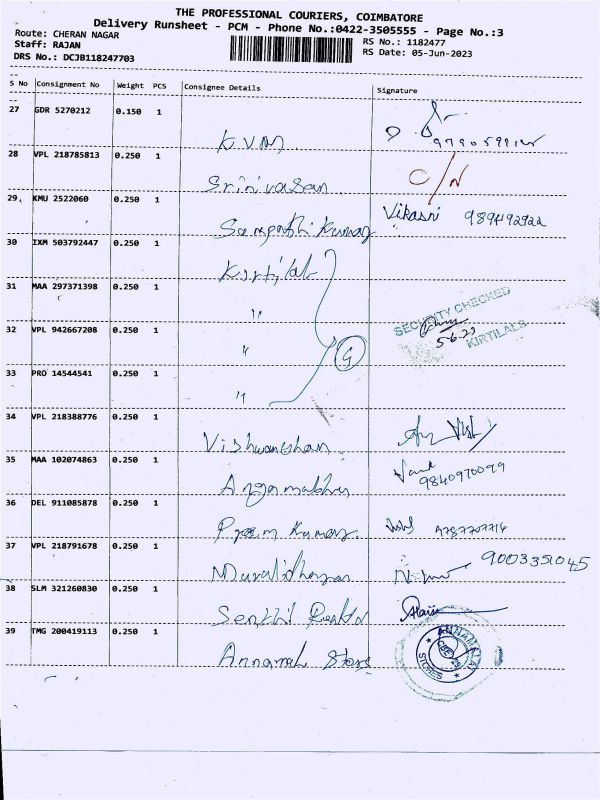 THE PROFESSIONAL COURIERS, COIMBATORE
Delivery Runsheet - PCM - Phone No.:0422-3505555 - Page No.:3
Route: CHERAN NAGAR
RS No.: 1182477
Staff: RAJAN
RS Date: 05-Jun-2023
DRS No.: DCJB118247703
S No Consignment No Weight PCS Consignee Details Signature
27 GDR 5270212 0.150 1
K.V.M.
28 VPL 218785813 0.250 1
Srinivasan
C/N
29 KMU 2522060 0.250 1
Sampathkumar Vikasni 989492922
30 IXM 503792447 0.250 1
Kirtilal
31 MAA 297371398 0.250 1
"
SECURITY CHECKED
32 VPL 942667208 0.250 1
5-6-23
KIRTILALS
"
33 PRO 14544541 0.250 1
"
34 VPL 218388776 0.250 1
Vishwanathan
35 MAA 102074863 0.250 1
9840970099
36 DEL 911085878 0.250 1
Prem Kumar 9787707714
37 VPL 218791678 0.250 1
Muralidharan 9003351045
38 SLM 321260830 0.250 1
Senthil
39 TMG 200419113 0.250 1
Annamalai Stores
ANNAMALAI
STORES